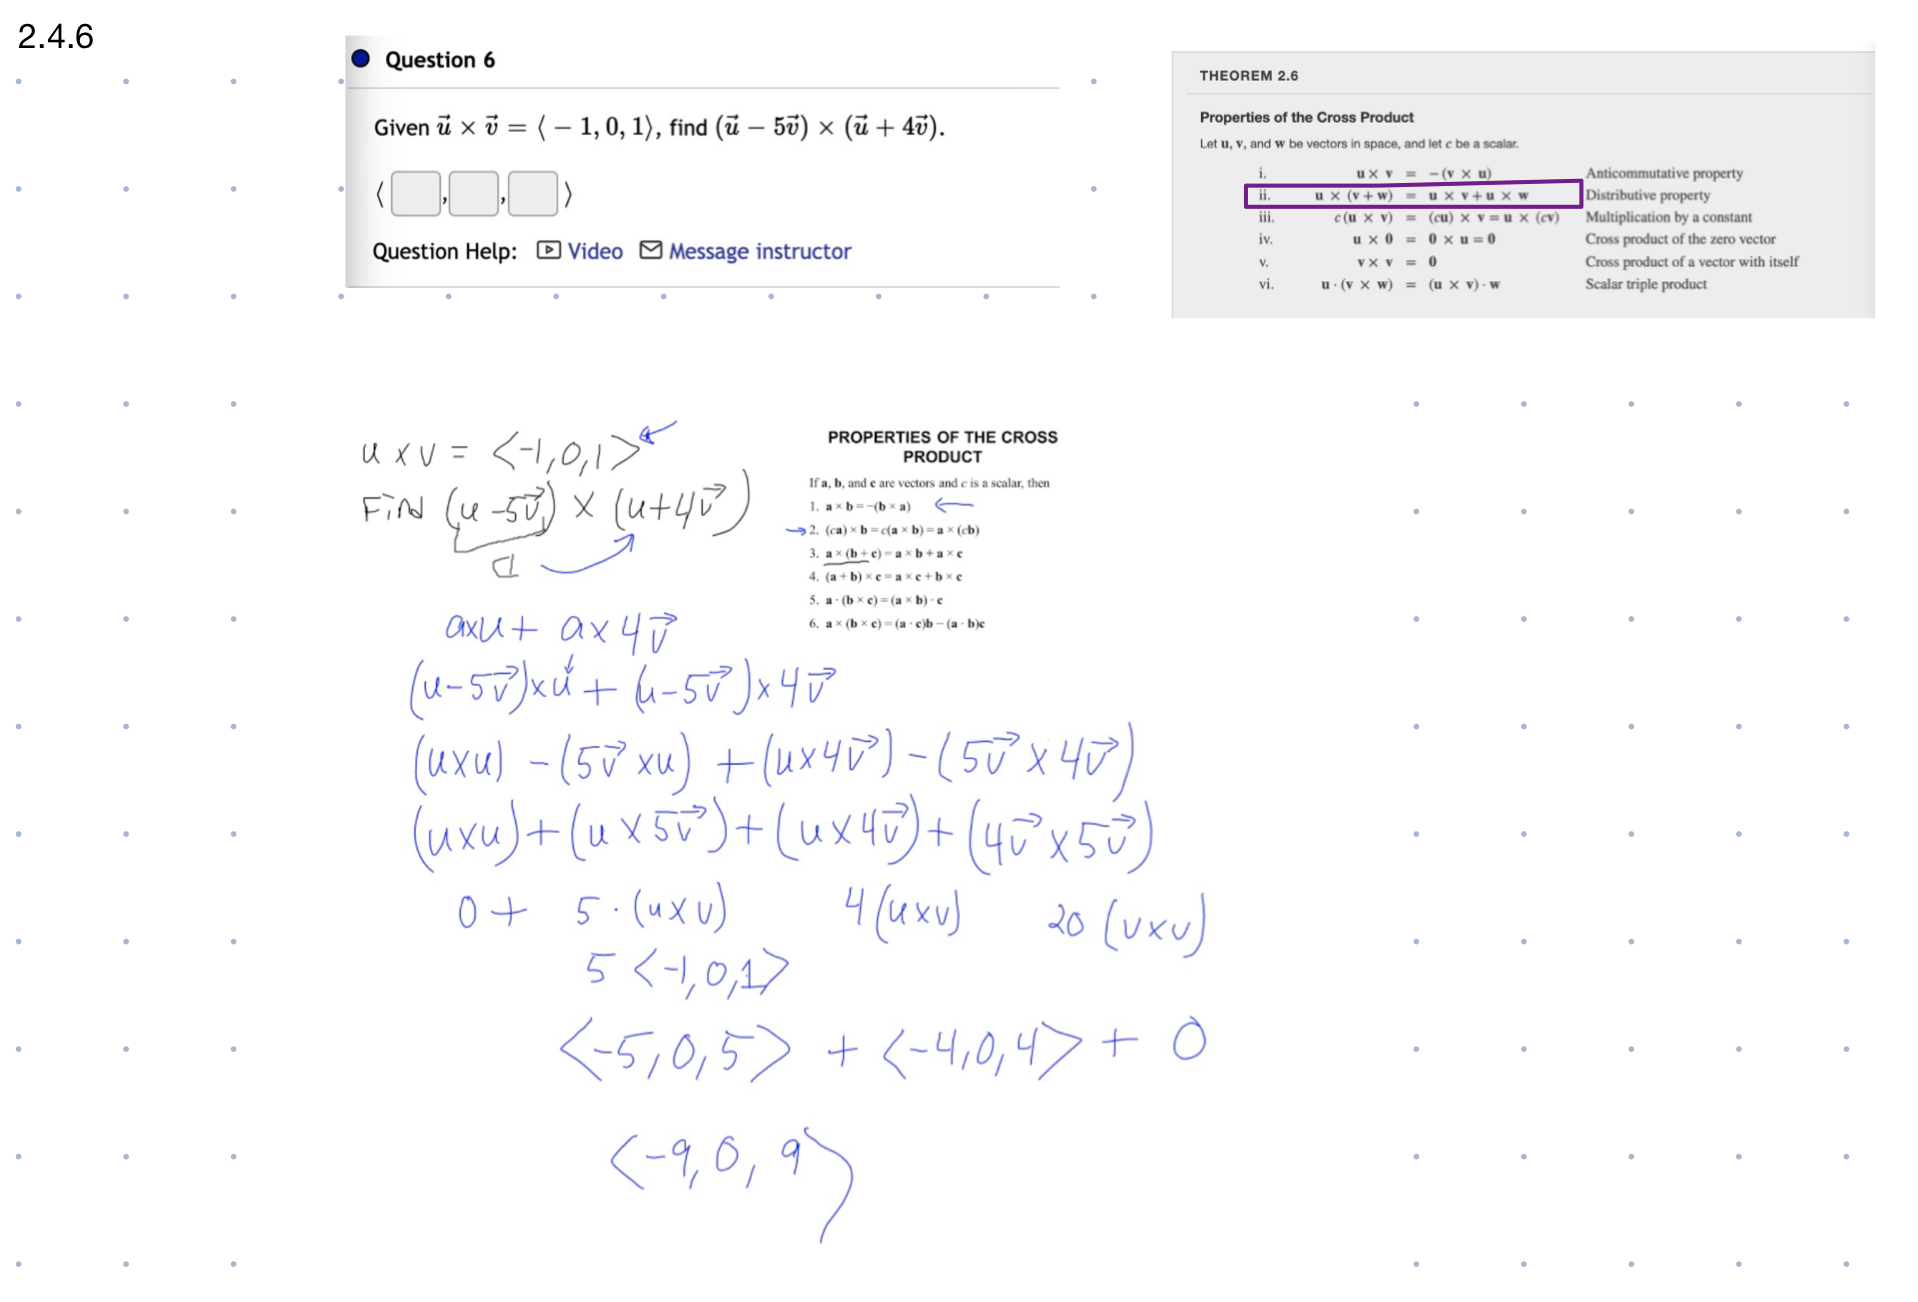 2.4.6
Question 6
Given u⃗ × v⃗ = ⟨ − 1, 0, 1⟩, find (u⃗ − 5v⃗) × (u⃗ + 4v⃗).
⟨ , , ⟩
Question Help: Video Message instructor
THEOREM 2.6
Properties of the Cross Product
Let u, v, and w be vectors in space, and let c be a scalar.
i. u × v = −(v × u) Anticommutative property
ii. u × (v + w) = u × v + u × w Distributive property
iii. c(u × v) = (cu) × v = u × (cv) Multiplication by a constant
iv. u × 0 = 0 × u = 0 Cross product of the zero vector
v. v × v = 0 Cross product of a vector with itself
vi. u · (v × w) = (u × v) · w Scalar triple product
u x v = <-1,0,1>
Find (u -5v⃗) x (u+4v⃗)
a
PROPERTIES OF THE CROSS
PRODUCT
If a, b, and c are vectors and c is a scalar, then
1. a × b = −(b × a)
2. (ca) × b = c(a × b) = a × (cb)
3. a × (b + c) = a × b + a × c
4. (a + b) × c = a × c + b × c
5. a · (b × c) = (a × b) · c
6. a × (b × c) = (a · c)b − (a · b)c
axu + ax4v⃗
(u-5v⃗)xu + (u-5v⃗)x4v⃗
(uxu) -(5v⃗ xu) +(ux4v⃗) -(5v⃗ x4v⃗)
(uxu)+(u x5v⃗)+(ux4v⃗)+(4v⃗ x5v⃗)
0+ 5·(uxv) 4(uxv) 20(vxv)
5<-1,0,1>
<-5,0,5> + <-4,0,4> + 0
<-9,0,9>